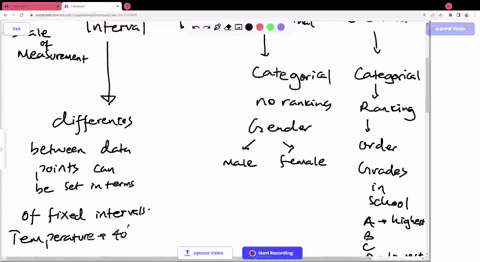 Exit
Submit Video
Scale
of
Measurement
Interval
differences
between data
points can
be set in terms
of fixed intervals.
Temperature → 40°
Categorical
no ranking
Gender
Male
female
Categorical
Ranking
order
Grades
in
school
A → highest
B
C
Upload Video
Start Recording